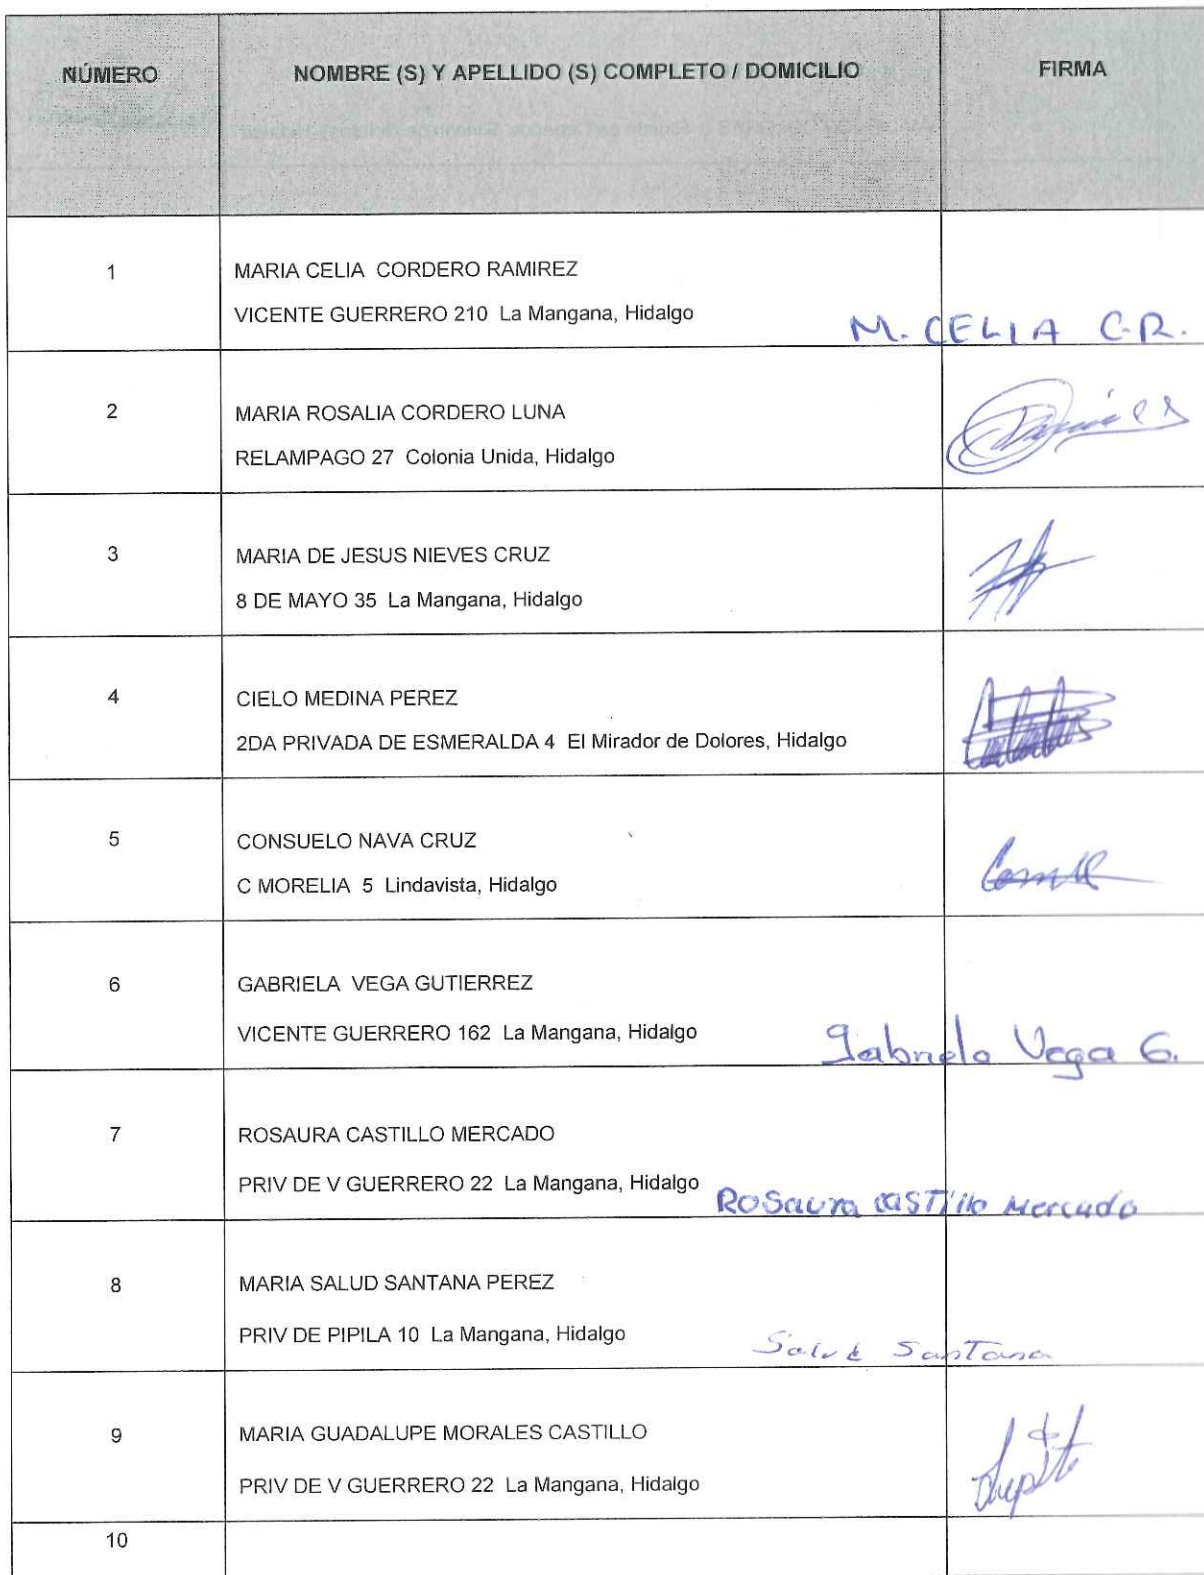 NÚMERO NOMBRE (S) Y APELLIDO (S) COMPLETO / DOMICILIO FIRMA
1 MARIA CELIA CORDERO RAMIREZ
VICENTE GUERRERO 210 La Mangana, Hidalgo
M. CELIA C.R.
2 MARIA ROSALIA CORDERO LUNA
RELAMPAGO 27 Colonia Unida, Hidalgo
3 MARIA DE JESUS NIEVES CRUZ
8 DE MAYO 35 La Mangana, Hidalgo
4 CIELO MEDINA PEREZ
2DA PRIVADA DE ESMERALDA 4 El Mirador de Dolores, Hidalgo
5 CONSUELO NAVA CRUZ
C MORELIA 5 Lindavista, Hidalgo
6 GABRIELA VEGA GUTIERREZ
VICENTE GUERRERO 162 La Mangana, Hidalgo
Gabriela Vega G.
7 ROSAURA CASTILLO MERCADO
PRIV DE V GUERRERO 22 La Mangana, Hidalgo
ROSaura CASTillo Mercado
8 MARIA SALUD SANTANA PEREZ
PRIV DE PIPILA 10 La Mangana, Hidalgo
Salud Santana
9 MARIA GUADALUPE MORALES CASTILLO
PRIV DE V GUERRERO 22 La Mangana, Hidalgo
Lupita
10